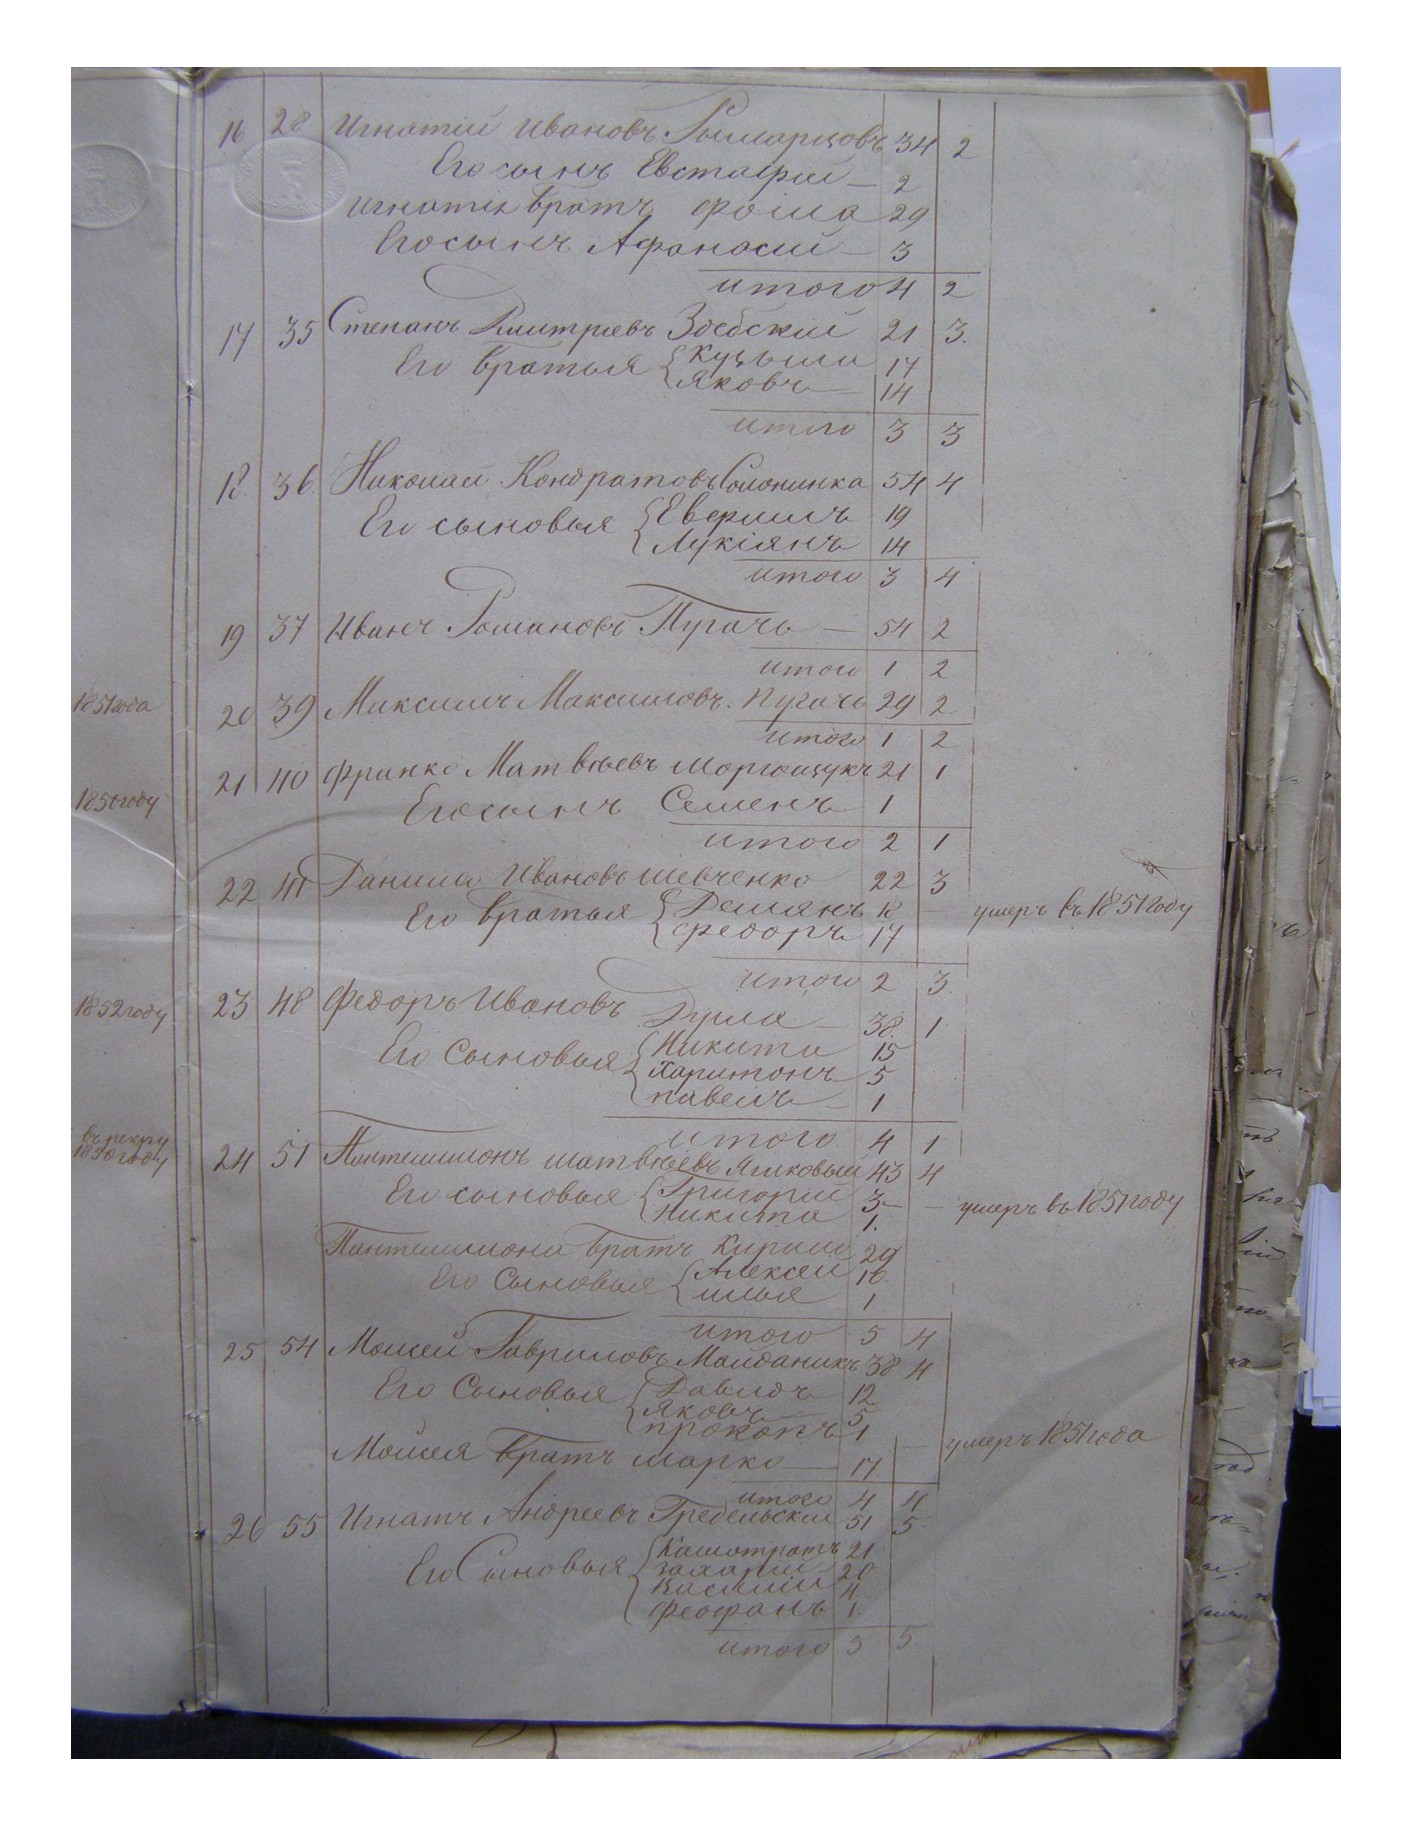 16 28 Игнатій Ивановъ Рымарцовъ 34 2
Его сынъ Евстафій — 2
Игнатія братъ Фома 29
Его сынъ Афанасій — 3
итого 4 2
17 35 Степанъ Дмитріевъ 21 3.
Его братья Кузьма 17
Яковъ — 14
итого 3 3
18. 36. Николай Кондратовъ Солонинка 54 4
Его сыновья 19
Лукіянъ 14
итого 3 4
19 37 Иванъ Романовъ Пугачъ — 54 2
итого 1 2
1851 года
20 39 Максимъ Максимовъ Пугачъ 29 2
итого 1 2
21 40 Франко Матвѣевъ 21 1
1850 году
Его сынъ Семенъ 1
итого 2 1
22 41 Данило Ивановъ Шевченко 22 3
Его братья Демянъ 18 — умеръ въ 1851 году
Федоръ 17
итого 2 3.
23 48 Федоръ Ивановъ Дума — 38. 1
1852 году
Его Сыновья Никита 15
Харитонъ 5
Павелъ — 1
итого 4 1
въ рекру
1850 году
24 51 Пантелимонъ Матвѣевъ 43 4
Его сыновья Григорій 3 — — умеръ въ 1851 году
Никита 1.
Пантелимона братъ Кирило 29
Его Сыновья Алексей 10
Илья 1
итого 5 4
25 54 Моисей Гавриловъ Майданикъ 38 4
Его Сыновья Давидъ 12
Яковъ 5
Прокопъ 1
Моисея братъ Марко — 17 — умеръ 1851 года
итого 4 4
26 55 Игнатъ Андреевъ Гребельскій 51 5.
Его Сыновья Калистратъ 21
Захарій 20
Василій
Феофанъ 1.
итого 5 5